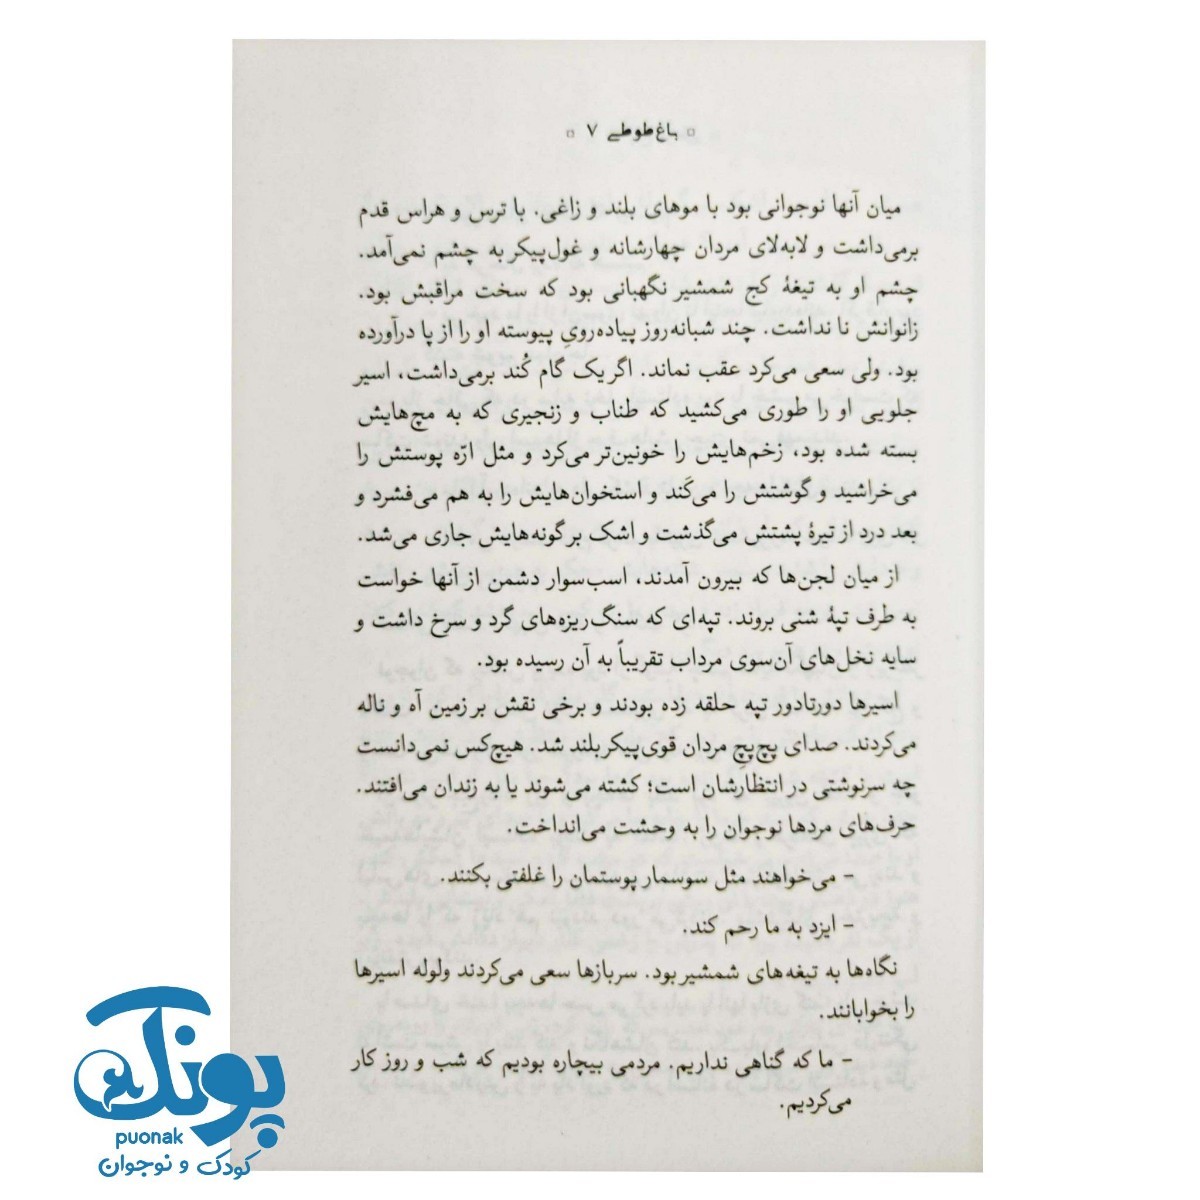 ▫ باغ طوطی ۷ ▫
میان آنها نوجوانی بود با موهای بلند و زاغی. با ترس و هراس قدم
برمی‌داشت و لابه‌لای مردان چهارشانه و غول‌پیکر به چشم نمی‌آمد.
چشم او به تیغهٔ کج شمشیر نگهبانی بود که سخت مراقبش بود.
زانوانش نا نداشت. چند شبانه‌روز پیاده‌رویِ پیوسته او را از پا درآورده
بود. ولی سعی می‌کرد عقب نماند. اگر یک گام کُند برمی‌داشت، اسیر
جلویی او را طوری می‌کشید که طناب و زنجیری که به مچ‌هایش
بسته شده بود، زخم‌هایش را خونین‌تر می‌کرد و مثل ارّه پوستش را
می‌خراشید و گوشتش را می‌کَند و استخوان‌هایش را به هم می‌فشرد و
بعد درد از تیرهٔ پشتش می‌گذشت و اشک بر گونه‌هایش جاری می‌شد.
از میان لجن‌ها که بیرون آمدند، اسب‌سوار دشمن از آنها خواست
به طرف تپهٔ شنی بروند. تپه‌ای که سنگ‌ریزه‌های گرد و سرخ داشت و
سایه نخل‌های آن‌سوی مرداب تقریباً به آن رسیده بود.
اسیرها دورتادور تپه حلقه زده بودند و برخی نقش بر زمین آه و ناله
می‌کردند. صدای پچ‌پچِ مردان قوی‌پیکر بلند شد. هیچ‌کس نمی‌دانست
چه سرنوشتی در انتظارشان است؛ کشته می‌شوند یا به زندان می‌افتند.
حرف‌های مردها نوجوان را به وحشت می‌انداخت.
– می‌خواهند مثل سوسمار پوستمان را غلفتی بکنند.
– ایزد به ما رحم کند.
نگاه‌ها به تیغه‌های شمشیر بود. سربازها سعی می‌کردند ولوله اسیرها
را بخوابانند.
– ما که گناهی نداریم. مردمی بیچاره بودیم که شب و روز کار
می‌کردیم.
پونک
puonak
کودک و نوجوان